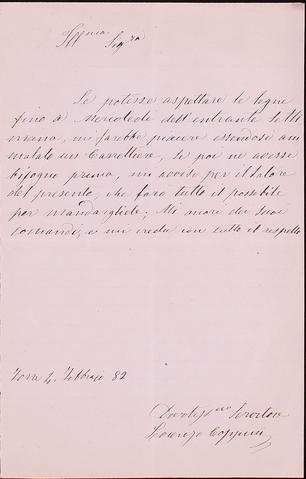 Illma Sigra
Se potesse aspettare le legne
fino a Mercoledì dell'entrante Setti
mana, mi farebbe piacere essendosi am
malato un Carrettiere, se poi ne avesse
bisogno prima, mi avvisi per il latore
del presente, che farò tutto il possibile
per mandargliele; Mi onori dei suoi
comandi, e mi creda con tutto il rispetto
Febbraio 82
Devotissmo Servitore
Lorenzo